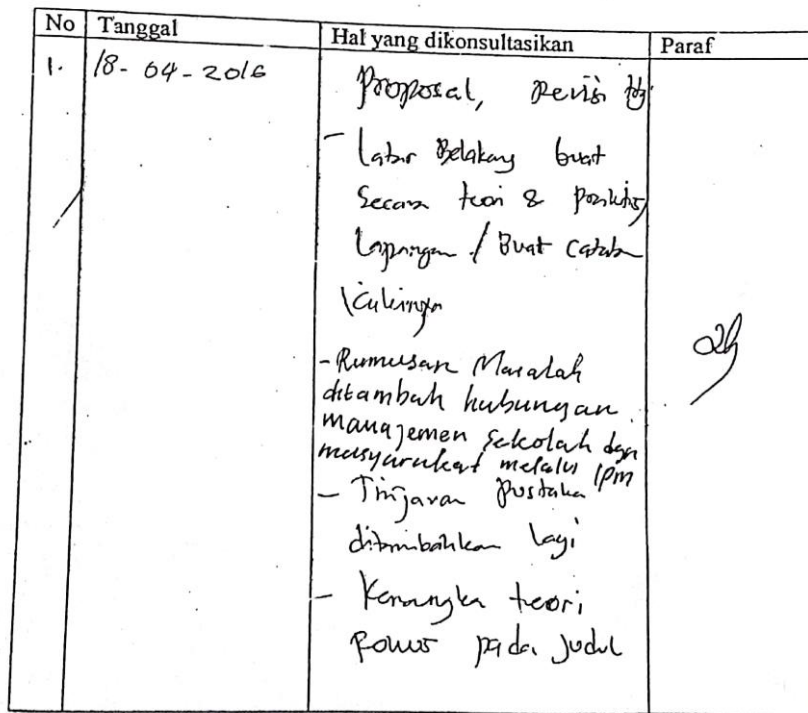 No Tanggal Hal yang dikonsultasikan Paraf
1. 18-04-2016 Proposal, Revisi
- Latar Belakang buat
Secara teori &
Lapangan / Buat
- Rumusan Masalah
ditambah hubungan
manajemen sekolah dgn
masyarakat melalui IPM
- Tinjauan Pustaka
ditambahkan lagi
- Kerangka teori
Fokus pada Judul